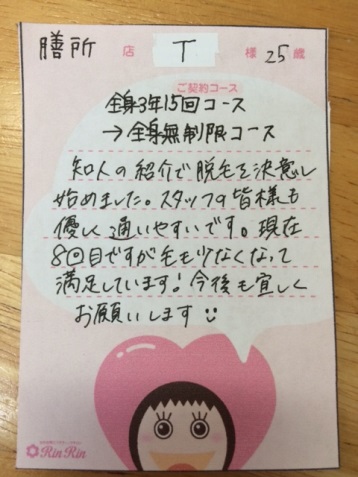 膳所 店 T 様 25歳
ご契約コース
全身3年15回コース
→全身無制限コース
知人の紹介で脱毛を決意し
始めました。スタッフの皆様も
優しく通いやすいです。現在
8回目ですが毛も少なくなって
満足しています!今後も宜しく
お願いします
RinRin